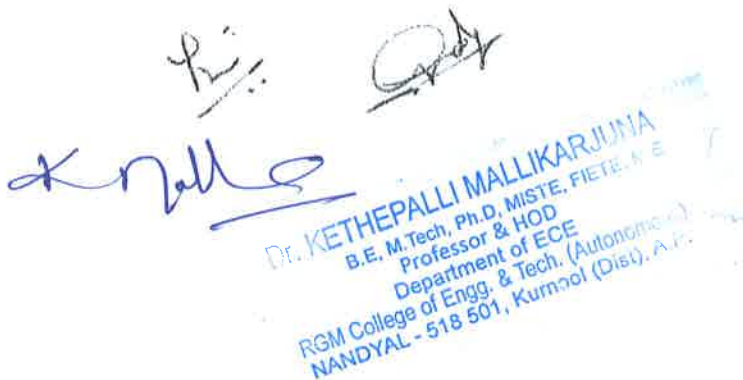 K Mall
Dr. KETHEPALLI MALLIKARJUNA
B.E, M.Tech, Ph.D, MISTE, FIETE,
Professor & HOD
Department of ECE
RGM College of Engg. & Tech. (Autonomous)
NANDYAL - 518 501, Kurnool (Dist), A.P.